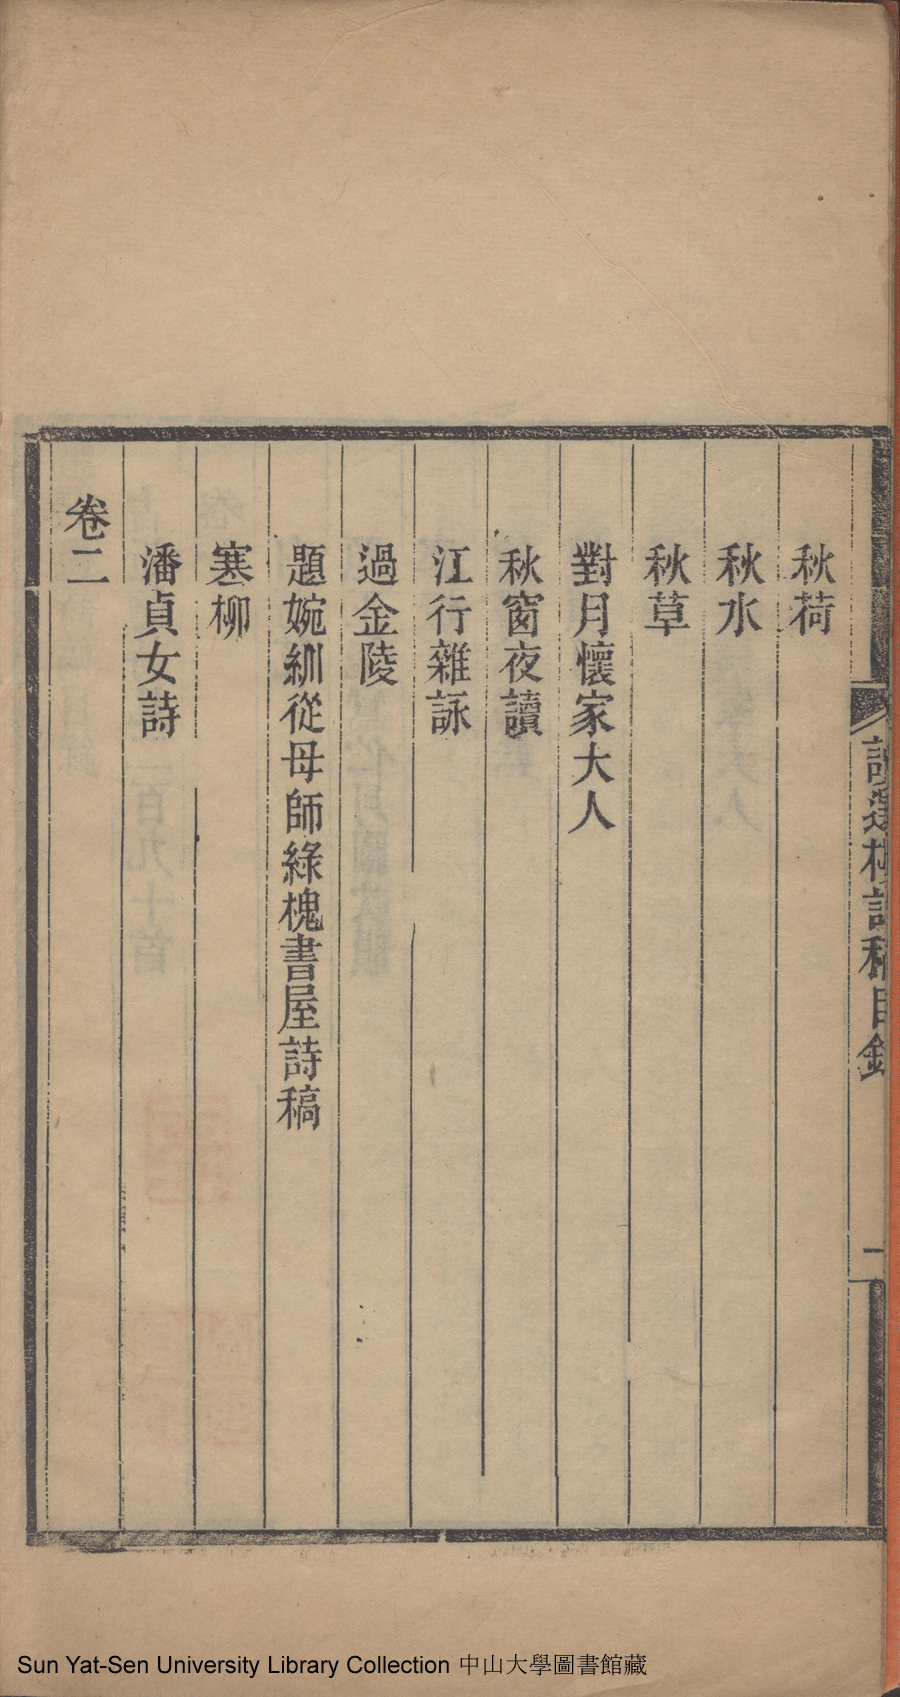 秋荷
秋水
秋草
對月懷家大人
秋窗夜讀
江行雜詠
過金陵
題婉紃從母師綠槐書屋詩稿
寒柳
潘貞女詩
卷二
讀選樓詩稿目錄
一
Sun Yat-Sen University Library Collection 中山大學圖書館藏